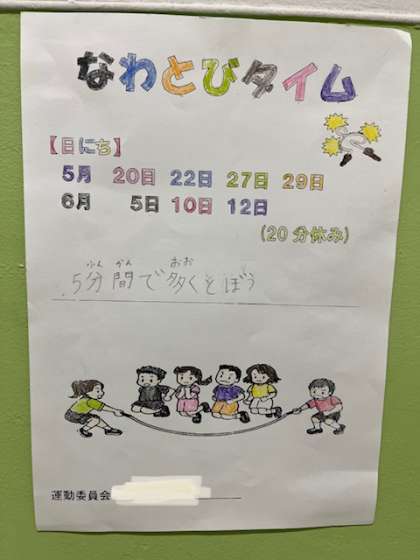 なわとびタイム
【日にち】
5月 20日 22日 27日 29日
6月 5日 10日 12日
(20分休み)
ふん かん おお
5分間で多くとぼう
運動委員会